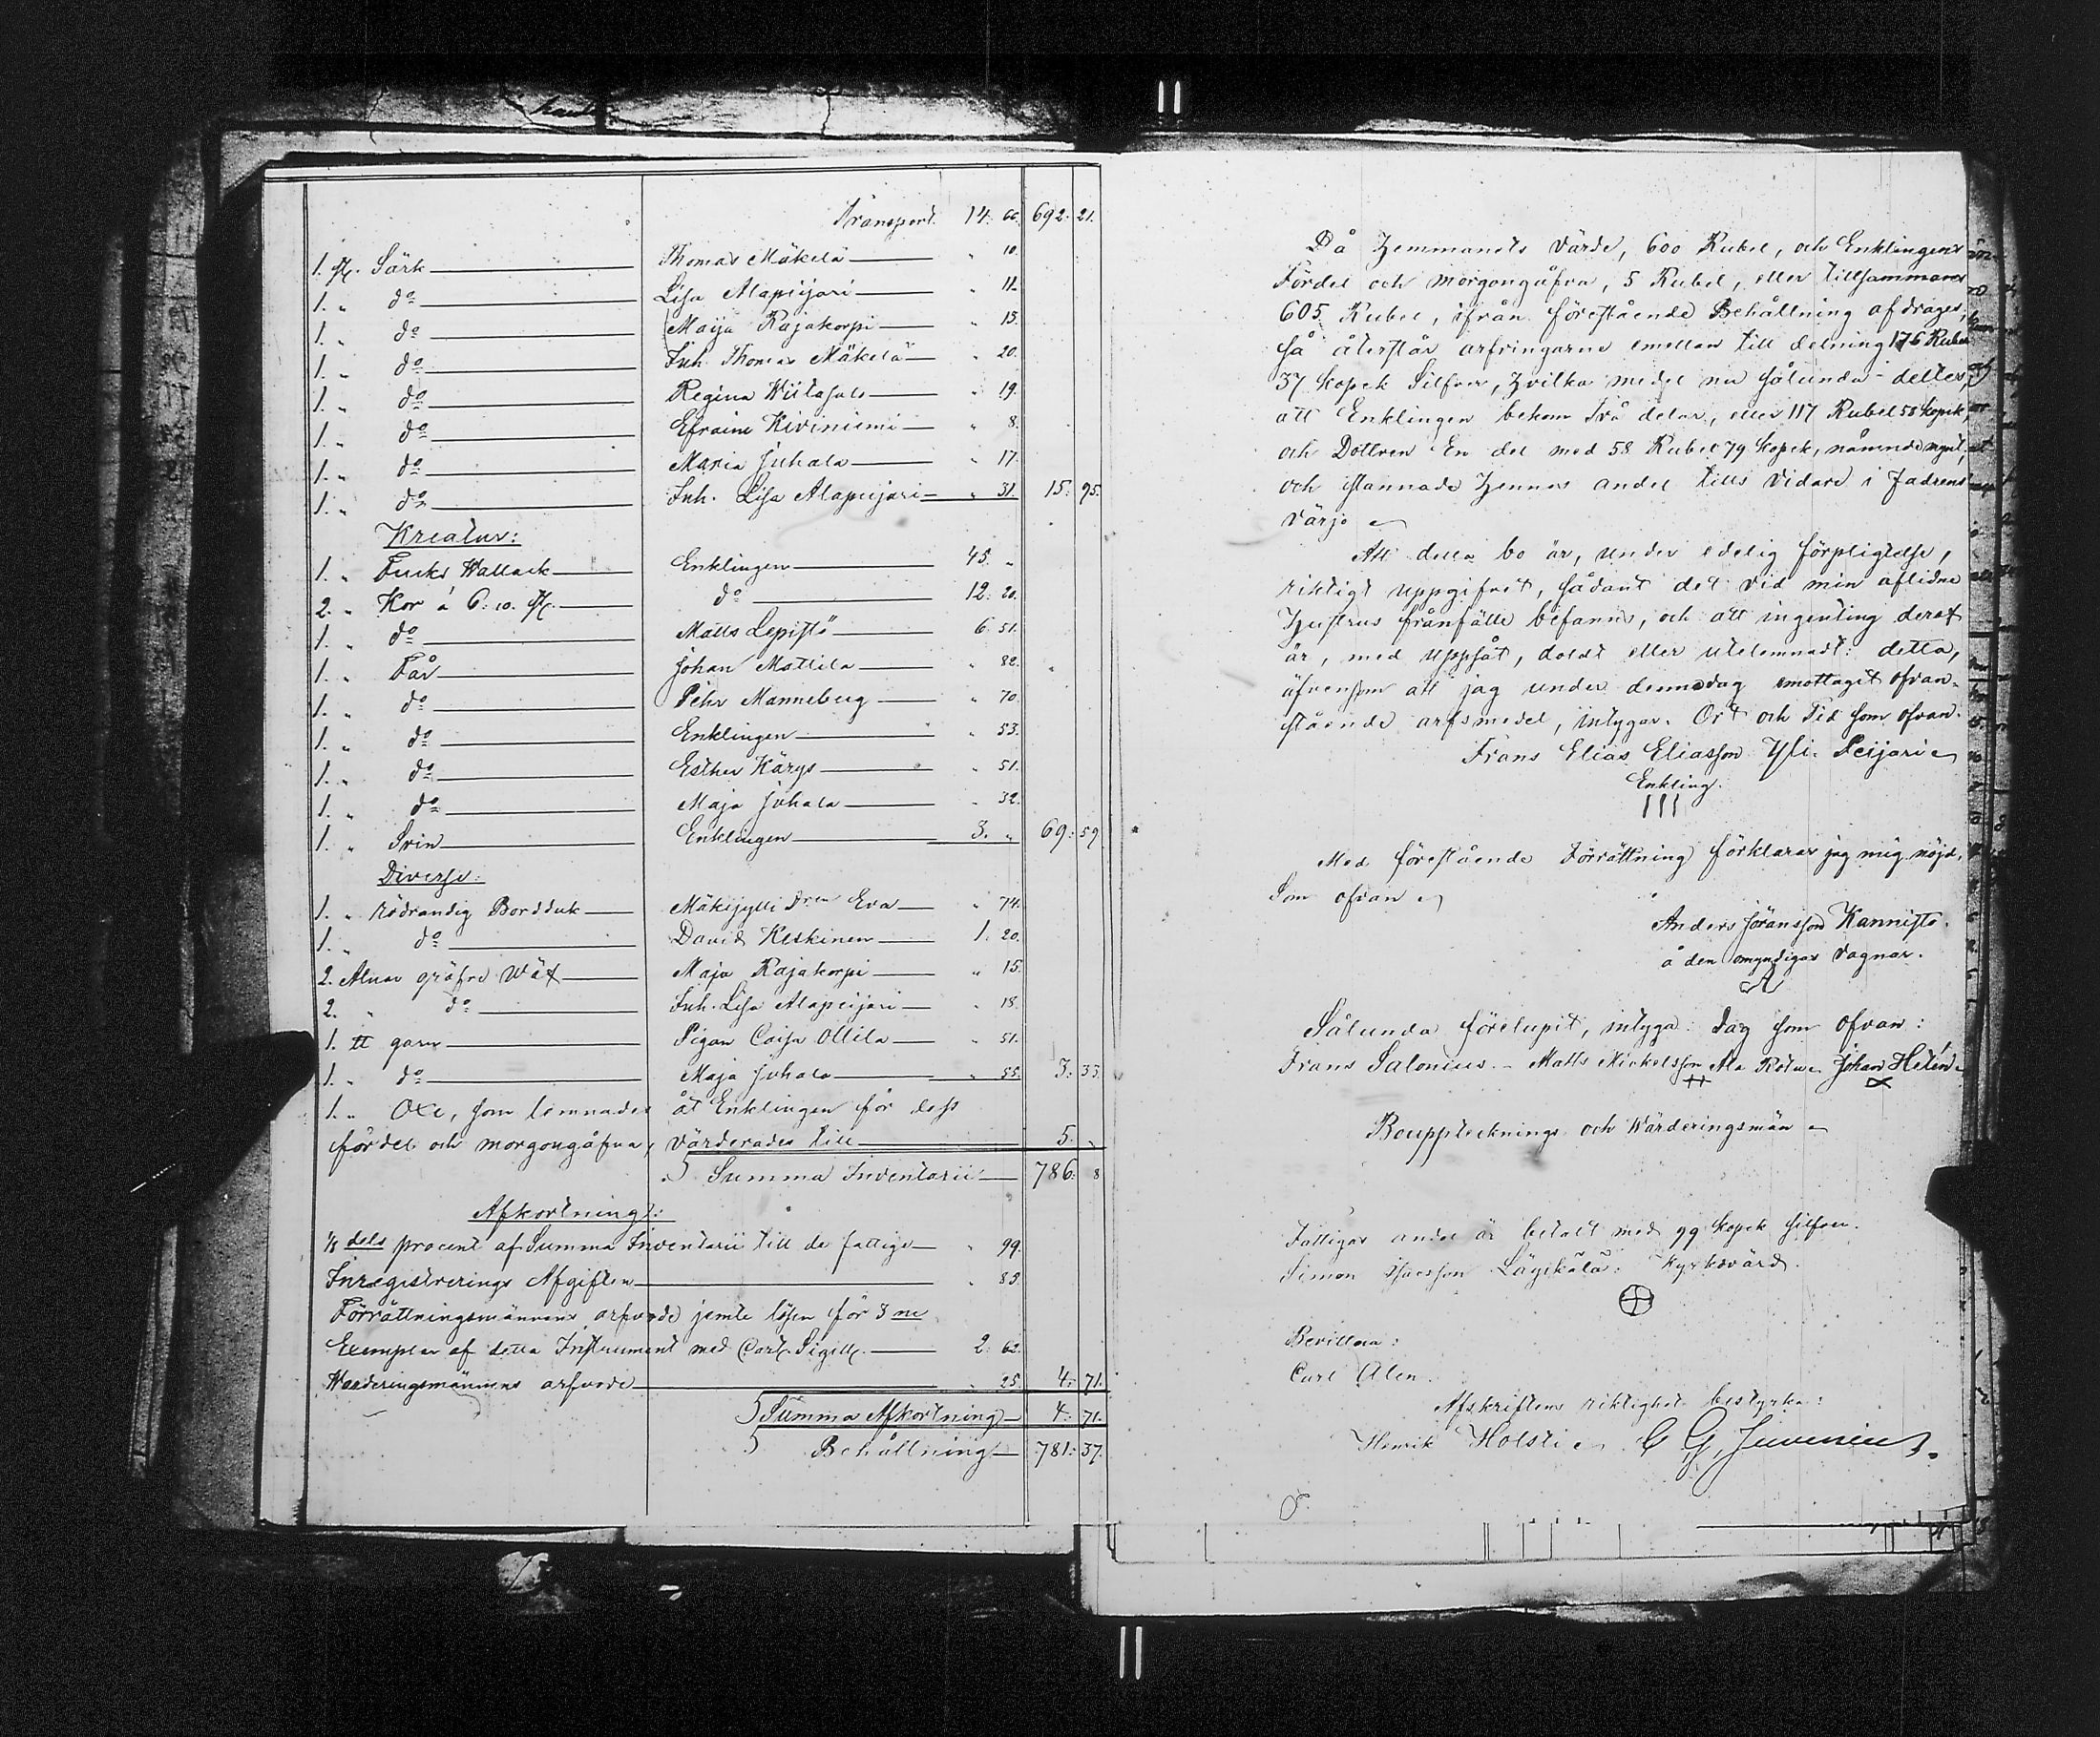 Transport. 14. 66. 692. 21.
1. st. Särk Thomas Mäkelä " 10.
1. " do Lisa Alapeijari " 11.
1. " do Maija Rajakorpi " 15.
1. " do Inh. Thomas Mäkelä " 20.
1. " do Regina Wiitasalo " 19.
1. " do Efraim Kiviniemi " 8.
1. " do Maria Juhala " 17.
1. " do Inh. Lisa Alapeijari " 31. 15. 95.
Kreatur:
1. " Fucks Wallack Enklingen 45. "
2. " Kor á 6. 10. st. do 12. 20.
1. " do Matts Lepistö 6. 51.
1. " Får Johan Mattila " 82.
1. " do Pehr Manneberg " 70.
1. " do Enklingen " 53.
1. " do Esther Kärys " 51.
1. " do Maja Juhala " 32.
1. " Svin Enklingen 3. " 69. 59
Diverse:
1. " rödrandig Bordduk Mäkijylli Dren Eva " 74.
1. " do David Keskinen 1. 20.
2. Alnar gräfre Wäf Maja Rajakorpi " 15.
2. " do Inh. Lisa Alapeijari " 18.
1. tt garn Pigan Caisa Ollila " 51.
1. " do Maja Juhala " 55. 3. 33.
1. " Oxe, som lemnades åt Enklingen för dess
fördel och morgongåfva, värderades till 5. "
Summa Inventarii 786. 8
Afkortning:
1/8 dels procent af Summa Inventarii till de fattiga " 99.
Inregistrerings Afgiften " 85.
Förrättningsmännens arfvode jemte lösen för 3 ne
Exemplar af detta Instrument med Cart. Sigill. 2. 62.
Waarderingsmännens arfvode " 25. 4. 71.
Summa Afkortning 4. 71.
Behållning 781. 37.
Då Hemmanets värde, 600 Rubel, och Enklingens
Fördel och morgongåfva, 5 Rubel, eller tillsammans
605 Rubel, ifrån förestående Behållning afdrages,
så återstår arfvingarne emellan till delning 176 Rubel
37 kopek Silfver, hvilka medel nu sålunda deltes,
att Enklingen bekom Två delar, eller 117 Rubel 58 kopek,
och Dottren En del med 58 Rubel 79 kopek, nämnde mynt,
och stannade Hennes andel tills vidare i Fadrens
värjo
Att detta bo är, under edelig förpligtelse,
riktigt uppgifvet, sådant det vid min aflidne
Hustrus frånfälle befanns, och att ingenting deraf
är, med uppsåt, doldt eller utelemnadt: detta,
äfvensom att jag under dennadag emottagit ofvan-
stående arfsmedel, intygar. Ort och Tid som ofvan.
Frans Elias Eliasson Yli Peijari
Enkling.
Med förestående Förrättning förklarar jag mig nöjd,
Som ofvan
Anders Jöransson Kannisto.
å den omyndigas vagnar.
Sålunda förelupit, intyga: Dag som ofvan:
Frans Salonius. Matts Mickelsson Ala Rotu. Johan Helén.
Bouppteknings och Wärderingsmän
Fattigas andel är betalt med 99 kopek silfver.
Simon Isacsson Kyrkovärd.
Bevittna:
Carl Alen.
Afskriftens riktighet bestyrka:
Henrik Holsti C G Juvenius.